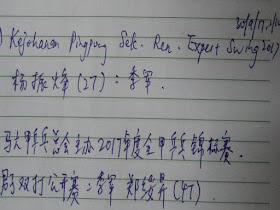 ) Kejohanan Pingpong Sek. Ren. Expert Swing 2017
杨振烽 (2T) : 季军.
马六甲乒总会主办2017年度全甲乒乓锦标赛.
双打公开赛 : 季军 郑 (4T).